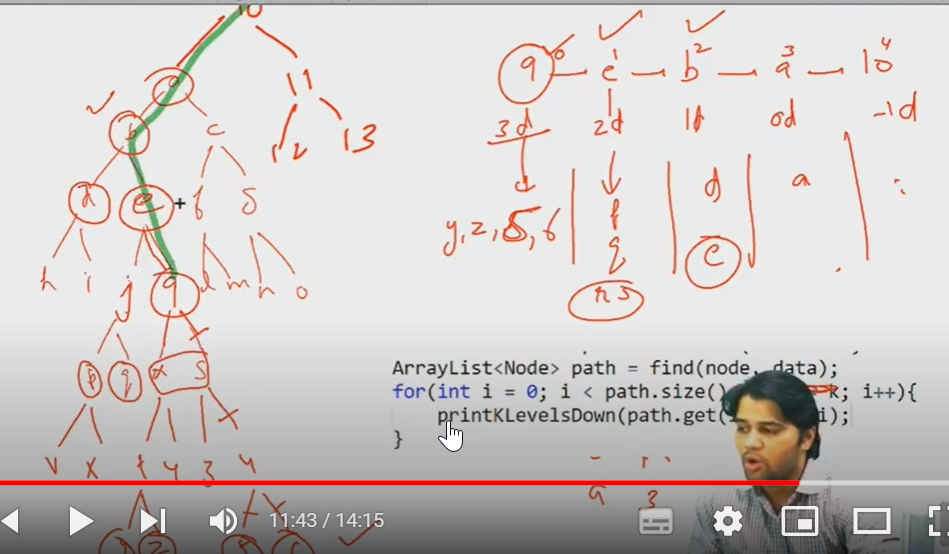 10
11
12 13
a
b c
d e f g
h i j 9 l m n o
p q r s
v x t y 3 4
9 — e¹ — b² — a³ — 10⁴
3d 2d 1d 0d -1d
y, z, 5, 6
q
r s
d
e
a
ArrayList<Node> path = find(node, data);
for(int i = 0; i < path.size() k; i++){
printKLevelsDown(path.get( i);
}
a 3
11:43 / 14:15